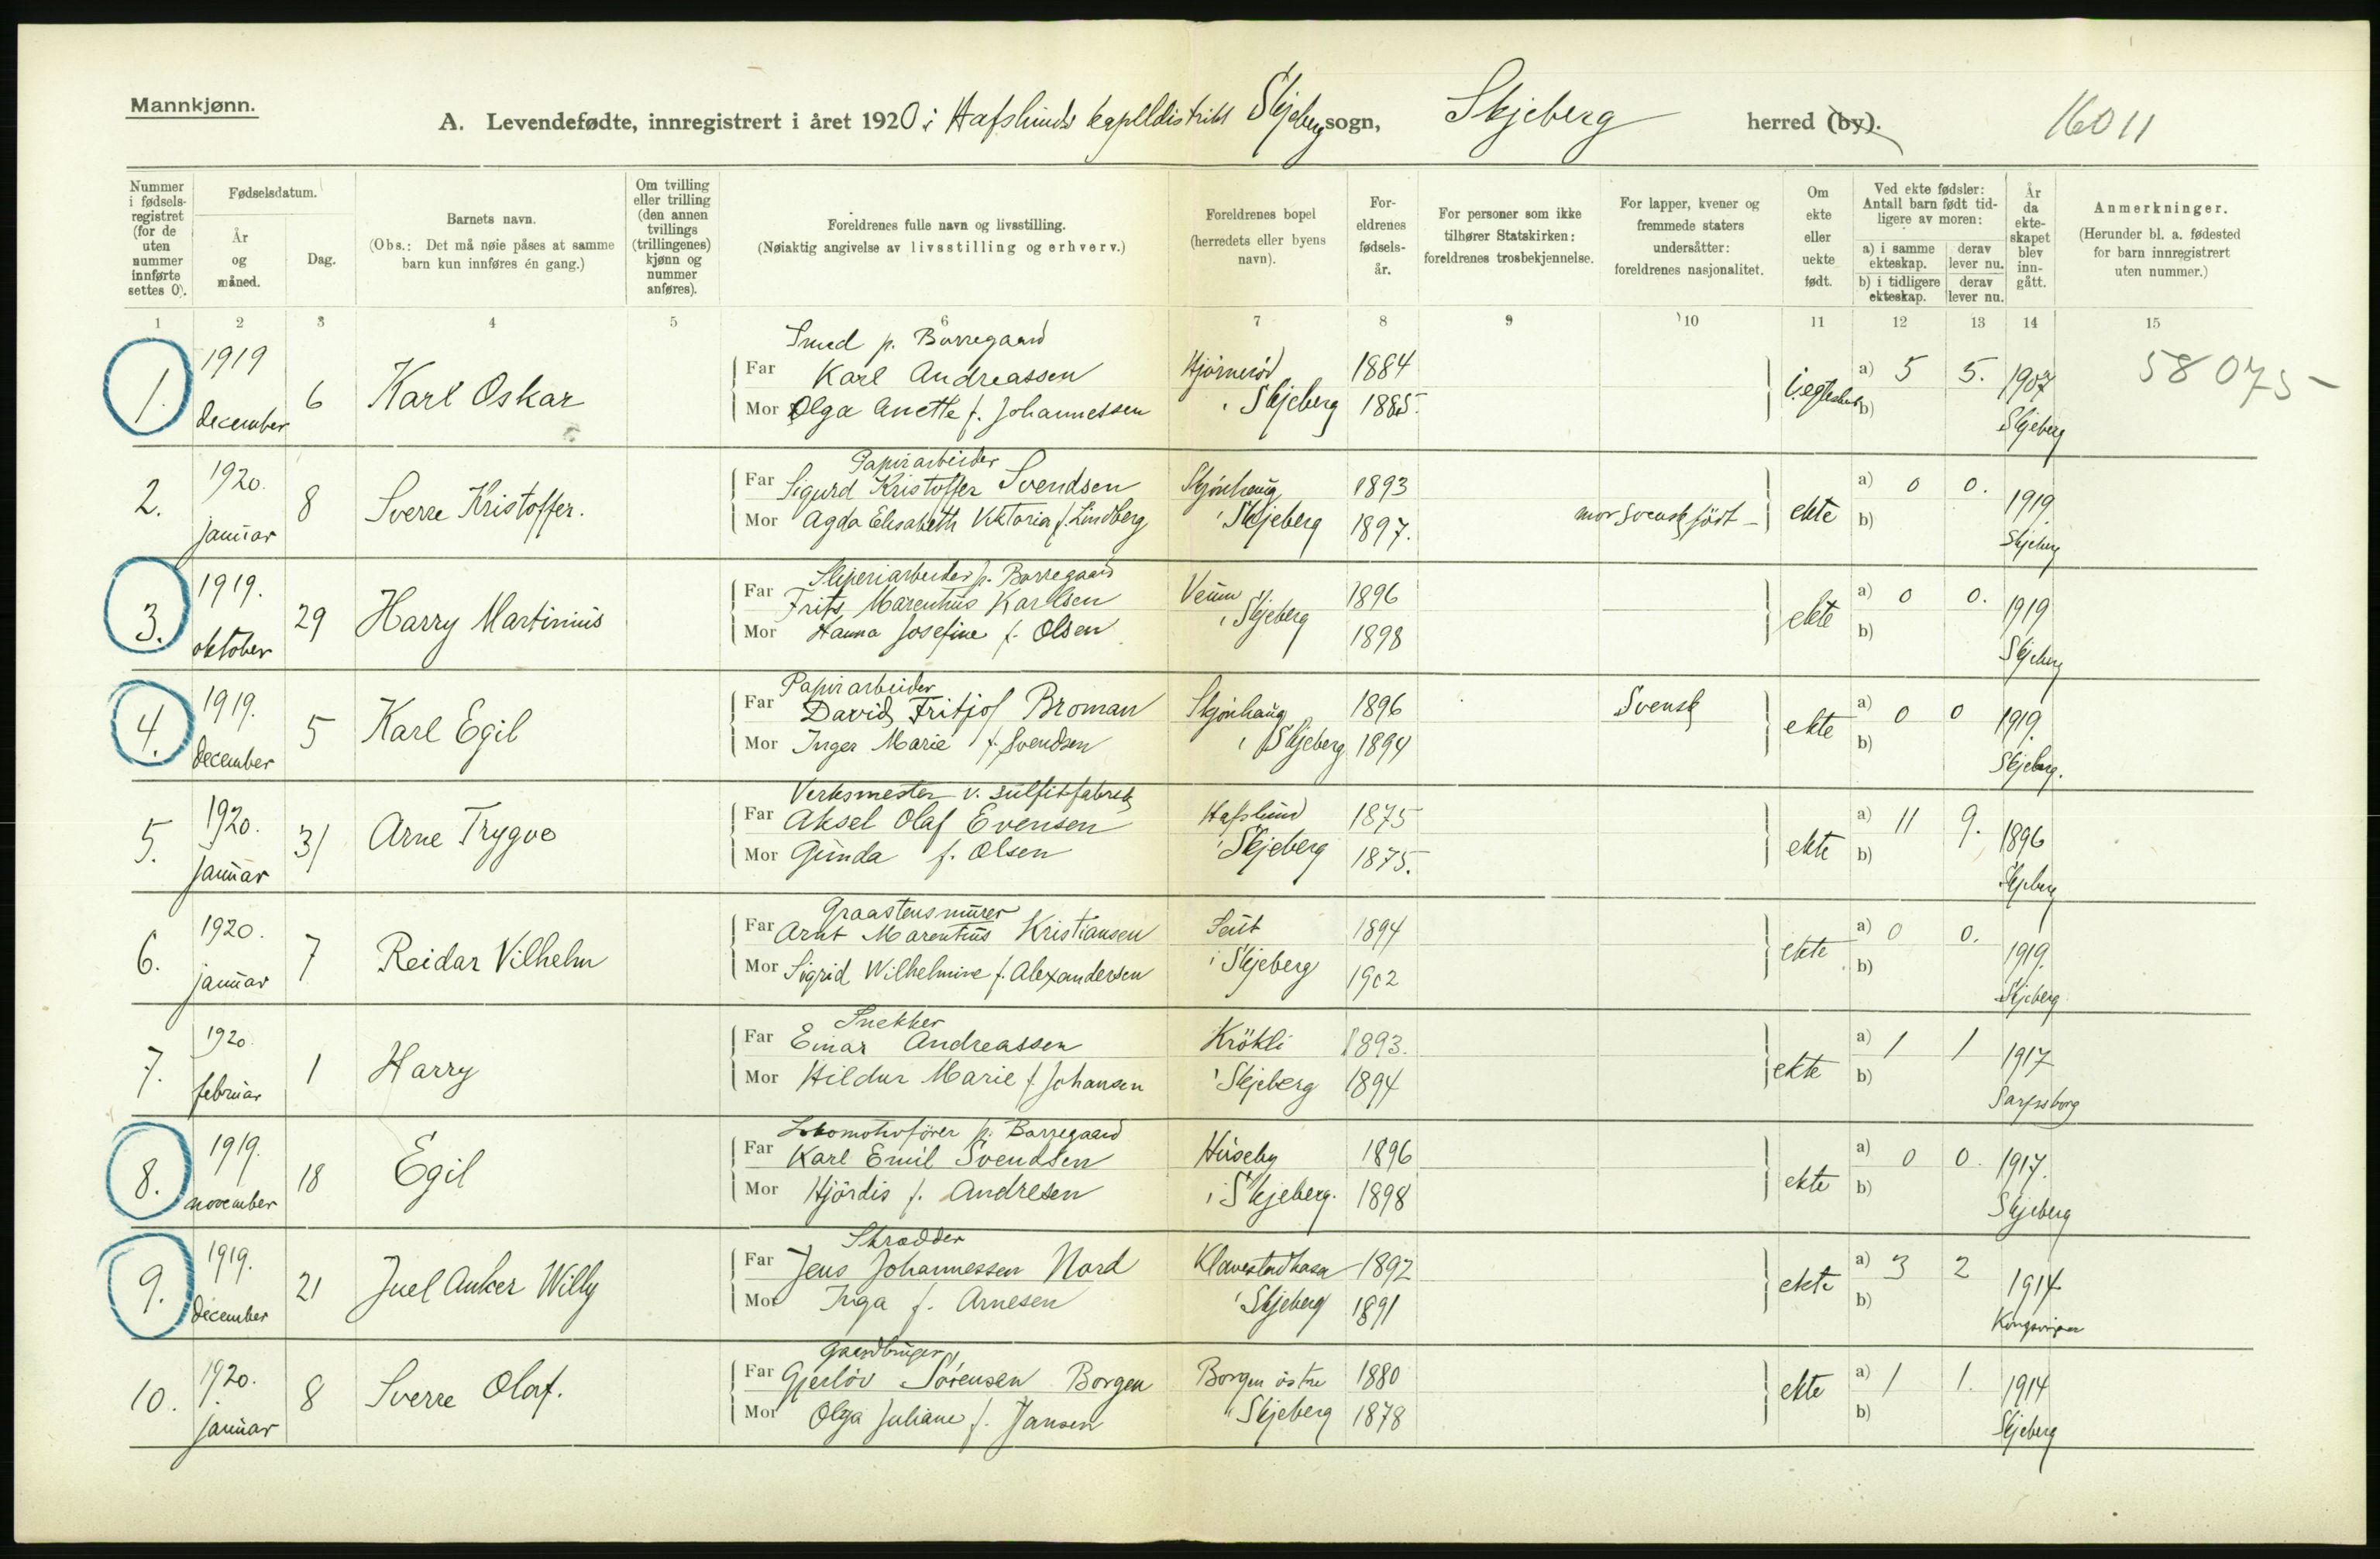 Mannkjønn.
A. Levendefødte, innregistrert i året 1920 i Hafslunds kaplldistrikt Skjeberg sogn, Skjeberg herred (by). 16011
Nummer i fødselsregistret (for de uten nummer innførte settes 0).
Fødselsdatum.
År og måned.
Dag.
Barnets navn.
(Obs.: Det må nøie påses at samme barn kun innføres én gang.)
Om tvilling eller trilling (den annen tvillings (trillingenes) kjønn og nummer anføres).
Foreldrenes fulle navn og livsstilling.
(Nøiaktig angivelse av livsstilling og erhverv.)
Foreldrenes bopel (herredets eller byens navn).
Foreldrenes fødselsår.
For personer som ikke tilhører Statskirken: foreldrenes trosbekjennelse.
For lapper, kvener og fremmede staters undersåtter: foreldrenes nasjonalitet.
Om ekte eller uekte født.
Ved ekte fødsler: Antall barn født tidligere av moren:
a) i samme ekteskap. derav lever nu.
b) i tidligere ekteskap. derav lever nu.
År da ekteskapet blev inngått.
Anmerkninger.
(Herunder bl. a. fødested for barn innregistrert uten nummer.)
1 2 3 4 5 6 7 8 9 10 11 12 13 14 15
Smed p. Borregaard
1. 1919 december 6 Karl Oskar
Far Karl Andreassen Hjørnerød 1884
Mor Olga Anette f. Johannessen i Skjeberg 1885.
a) 5 5. 1907 Skjeberg 58075 -
b)
Papirarbeider
2. 1920. januar 8 Sverre Kristoffer.
Far Sigurd Kristoffer Svendsen Skjønhaug 1893
Mor Agda Elisabeth Viktoria f. Lindberg i Skjeberg 1897. mor svensk født - ekte
a) 0 0. 1919 Skjeberg
b)
Sliperiarbeider p. Borregaard
3. 1919. oktober 29 Harry Martinius
Far Frits Marentius Karlsen Veum 1896
Mor Hanna Josefine f. Olsen i Skjeberg 1898 ekte
a) 0 0. 1919 Skjeberg
b)
Papirarbeider
4. 1919. december 5 Karl Egil
Far David Fritjof Broman Skjønhaug 1896 Svensk
Mor Inger Marie f. Svendsen i Skjeberg 1894 ekte
a) 0 0 1919. Skjeberg.
b)
Verksmester v. sulfitfabrik
5. 1920. januar 31 Arne Trygve
Far Aksel Olaf Evensen Hafslund 1875
Mor Gunda f. Olsen i Skjeberg 1875. ekte
a) 11 9. 1896 Skjeberg
b)
Graastensmurer
6. 1920. januar 7 Reidar Vilhelm
Far Arnt Marentius Kristiansen 1894
Mor Sigrid Wilhelmine f. Alexandersen i Skjeberg 1902 ekte
a) 0 0. 1919. Skjeberg
b)
Snekker
7. 1920. februar 1 Harry
Far Einar Andreassen Krökli 1893.
Mor Hildur Marie f. Johansen i Skjeberg 1894 ekte
a) 1 1 1917 Sarpsborg
b)
Lokomotivfører p. Borregaard
8. 1919. november 18 Egil
Far Karl Emil Svendsen Huseby 1896
Mor Hjördis f. Andresen i Skjeberg. 1898 ekte
a) 0 0. 1917. Skjeberg
b)
Skrædder
9. 1919. december 21 Juel Anker Willy
Far Jens Johannessen Nord Klavestadhasa 1892
Mor Inga f. Arnesen i Skjeberg 1891 ekte
a) 3 2 1914
b)
Gaardbruger
10. 1920. januar 8 Sverre Olaf.
Far Gjerlöv Sörensen Borgen Borgen östre 1880
Mor Olga Juliane f. Jansen i Skjeberg 1878 ekte
a) 1 1. 1914 Skjeberg
b)